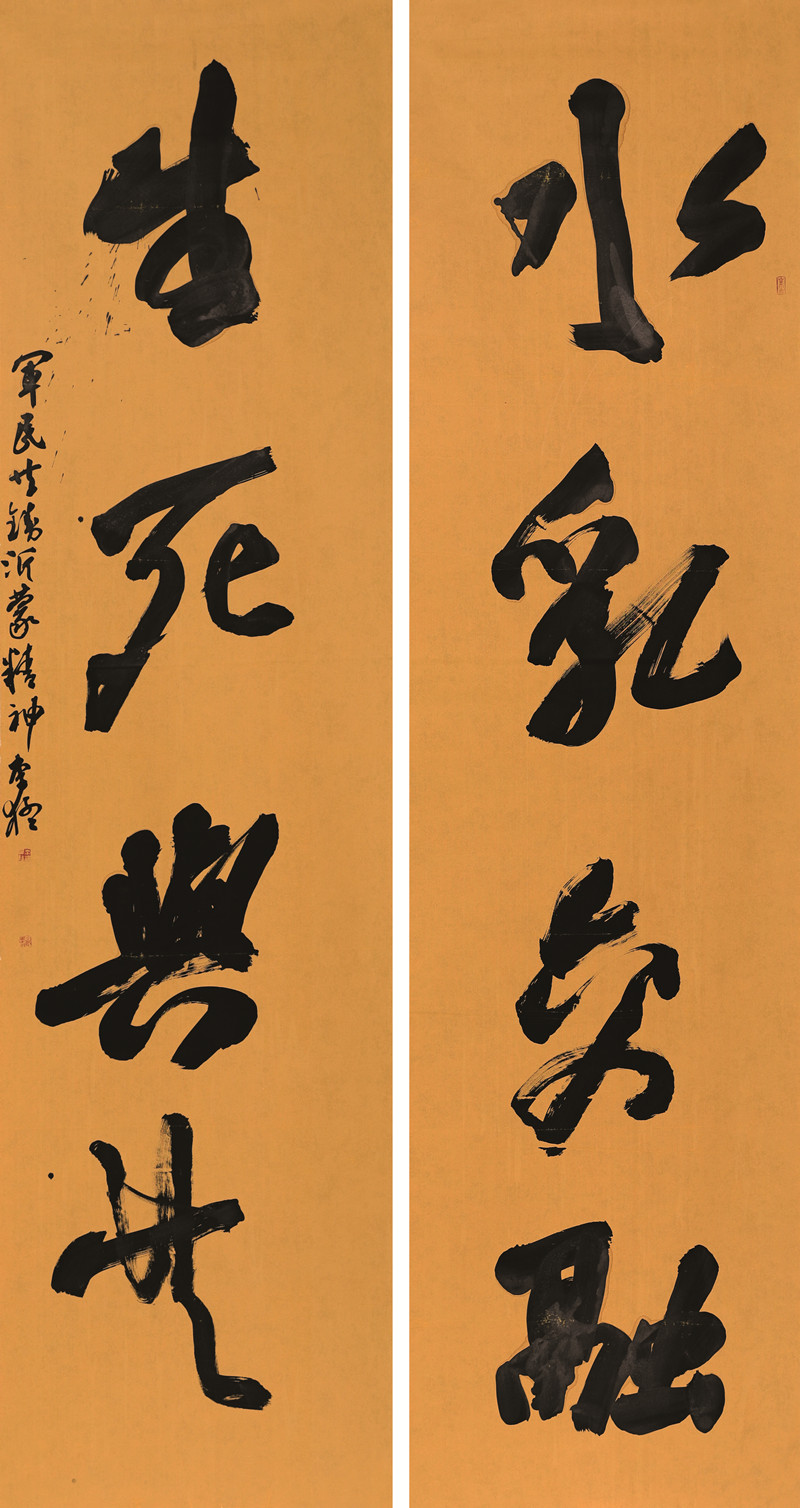 水乳交融
生死与共
軍民共鑄沂蒙精神